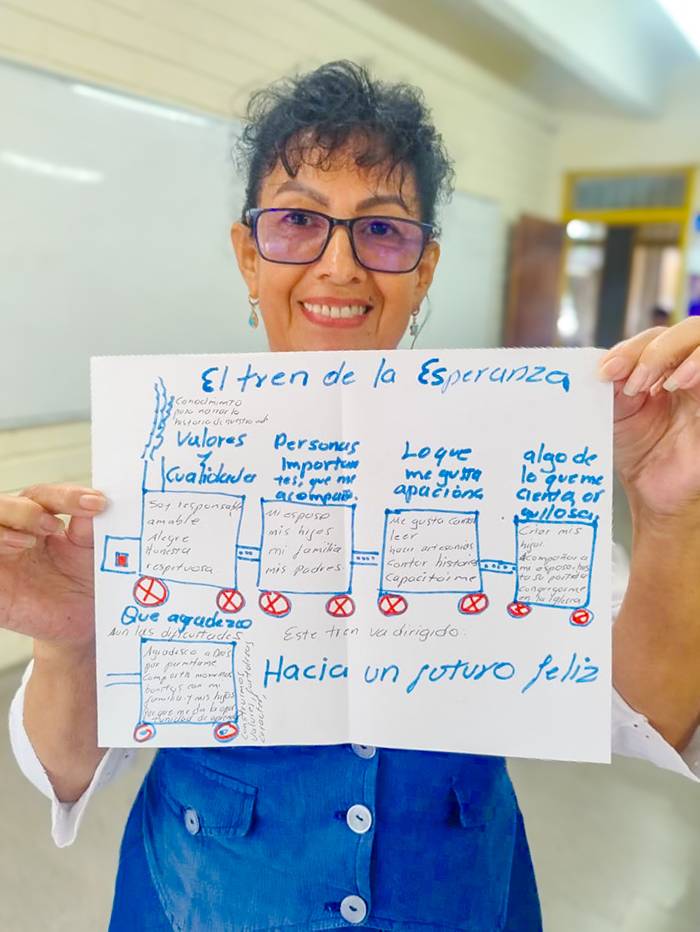 El tren de la Esperanza
Conocimiento
para narrar la
historia de nuestra
Valores
y
Cualidades
Soy responsable
amable
Alegre
Honesta
respetuosa
Personas
Importan
tes, que me
acompaño.
Mi esposo
mis hijos
mi familia
mis padres.
Lo que
me gusta
apaciona
Me gusta cantar
leer
hacer artesanias
contar historias
Capacitarme
algo de
lo que me
cienta or
gullosa.
Criar mis
hijos.
Acompañar a
mi esposo has
ta su partida
congregarme
en la Iglesia
Que agradezco
Aun las dificultades
Agradesco a Dios
por permitirme
compartir momentos
bonitos con mi
familia y mis hijos
porque me da la opor
tunidad de
construimos
valores, fortalezas
caracter,
Este tren va dirigido:
Hacia un futuro feliz